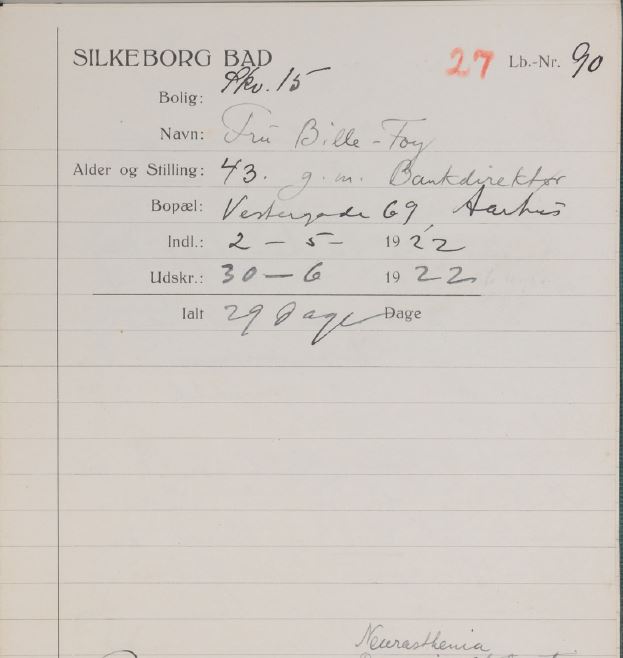 SILKEBORG BAD 27 Lb.-Nr. 90
Bolig: Pkv. 15
Navn: Fru Bille-Foy
Alder og Stilling: 43. g. m. Bankdirektør
Bopæl: Vestergade 69 Aarhus
Indl.: 2 - 5 - 1922
Udskr.: 30 - 6 1922
Ialt 29 Dage Dage
Neurasthenia